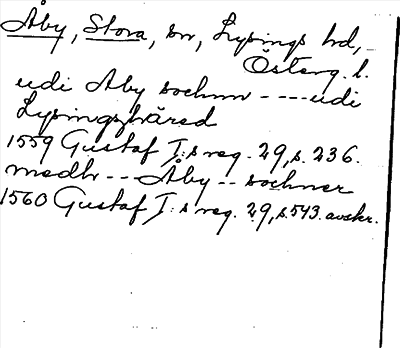 Åby, Stora, sn, Lysings hd,
Österg. l.
udi Åby sochnn ---- udi
Lysingzhäred
1559 Gustaf I:s reg. 29, s. 236.
medh -- Åby -- sochner
1560 Gustaf I:s reg. 29, s. 543. avskr.